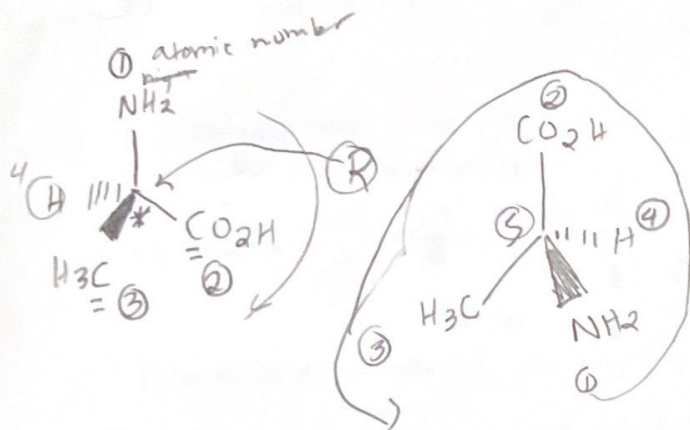 ① atomic number
NH2
4 H
*
CO2H
②
H3C
③
R
②
CO2H
S
H ④
H3C
③
NH2
①